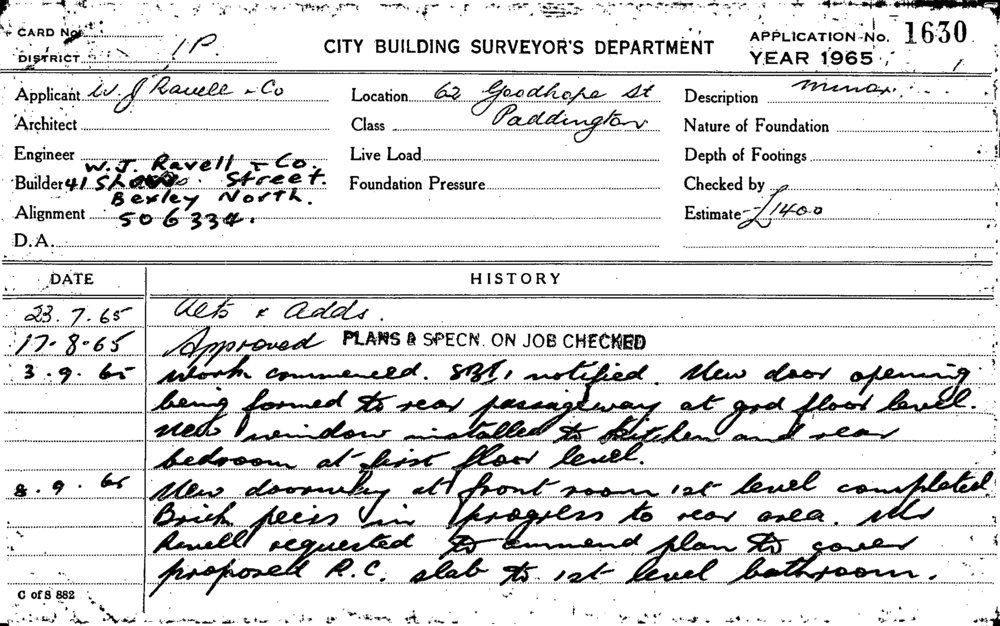 CARD No.
DISTRICT 1P.
CITY BUILDING SURVEYOR'S DEPARTMENT
APPLICATION No. 1630
YEAR 1965
Applicant W J Ravell & Co
Location 62 Goodhope St
Paddington
Description minor
Architect
Class
Nature of Foundation
Engineer
Live Load
Depth of Footings
W. J. Ravell & Co.
Builder 41 Street.
Bexley North.
506334.
Foundation Pressure
Checked by
Alignment
Estimate £1400
D.A.
DATE
HISTORY
23.7.65 Alts & adds.
17-8-65 Approved PLANS & SPECN. ON JOB CHECKED
3.9.65 Work commenced. notified. New door opening
being formed to rear passageway at grd floor level.
New window installed to kitchen and rear
bedroom at first floor level.
8.9.65 New doorway at front room 1st level completed
Brick peirs in progress to rear area. Mr
Ravell requested to ammend plan to cover
proposed R.C. slab to 1st level bathroom.
C of S 882